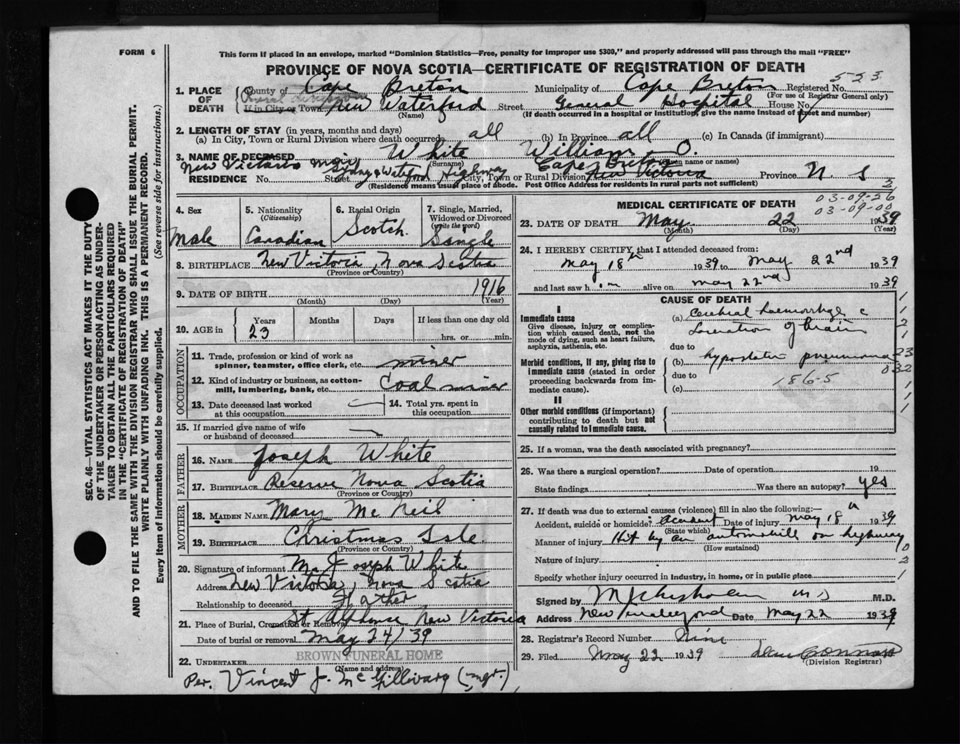 FORM 6
This form if placed in an envelope, marked "Dominion Statistics—Free, penalty for improper use $300," and properly addressed will pass through the mail "FREE"
PROVINCE OF NOVA SCOTIA—CERTIFICATE OF REGISTRATION OF DEATH
523
1. PLACE OF DEATH
County of Cape Breton Municipality of Cape Breton Registered No.
(For use of Registrar General only)
If in City or Town New Waterford Street General Hospital House No.
(Name) (If death occurred in a hospital or institution, give the name instead of street and number)
2. LENGTH OF STAY (in years, months and days)
(a) In City, Town or Rural Division where death occurred all (b) In Province all (c) In Canada (if immigrant)
3. NAME OF DECEASED White William O.
(Surname)
New Victoria Sydney & Waterford Highway Cape Breton
RESIDENCE No. Street City, Town or Rural Division New Victoria Province N. S
(Residence means usual place of abode. Post Office Address for residents in rural parts not sufficient)
4. Sex
Male
5. Nationality
(Citizenship)
Canadian
6. Racial Origin
Scotch
7. Single, Married, Widowed or Divorced
(write the word)
Single
8. BIRTHPLACE New Victoria, Nova Scotia
(Province or Country)
9. DATE OF BIRTH 1916
(Month) (Day) (Year)
10. AGE in
Years Months Days If less than one day old
23 hrs. or min.
OCCUPATION
11. Trade, profession or kind of work as spinner, teamster, office clerk, etc. miner
12. Kind of industry or business, as cotton-mill, lumbering, bank, etc. Coal mine
13. Date deceased last worked at this occupation
14. Total yrs. spent in this occupation
15. If married give name of wife or husband of deceased
FATHER
16. NAME Joseph White
17. BIRTHPLACE Reserve Nova Scotia
(Province or Country)
MOTHER
18. MAIDEN NAME Mary McNeil
19. BIRTHPLACE Christmas Isle
(Province or Country)
20. Signature of informant Mr Joseph White
Address New Victoria, Nova Scotia
Relationship to deceased Father
21. Place of Burial, Cremation or Removal St Alphonse New Victoria
Date of burial or removal May 24/39
BROWN FUNERAL HOME
22. UNDERTAKER
(Name and address)
Per. Vincent J. McGillivary (mgr.)
03-09-26
03-09-00
MEDICAL CERTIFICATE OF DEATH
23. DATE OF DEATH May 22 1939
(Month) (Day) (Year)
24. I HEREBY CERTIFY, that I attended deceased from:
May 18th 1939 to May 22nd 1939
and last saw him alive on May 22nd 1939
CAUSE OF DEATH
I
Immediate cause
Give disease, injury or complication which caused death, not the mode of dying, such as heart failure, asphyxia, asthenia, etc.
(a) Cerebral haemorrhage c
Laceration of brain
due to
Morbid conditions, if any, giving rise to immediate cause (stated in order proceeding backwards from immediate cause).
(b) hypostatic pneumonia
due to
186-5
(c)
II
Other morbid conditions (if important) contributing to death but not causally related to immediate cause.
25. If a woman, was the death associated with pregnancy?
26. Was there a surgical operation? Date of operation 19
State findings Was there an autopsy? yes
27. If death was due to external causes (violence) fill in also the following:—
Accident, suicide or homicide? accident Date of injury May 18th 1939
(State which)
Manner of injury Hit by an automobile on highway
(How sustained)
Nature of injury
Specify whether injury occurred in industry, in home, or in public place
Signed by M.D.
Address New Waterford Date May 22 1939
28. Registrar's Record Number Nine
29. Filed May 22 1939
(Division Registrar)
SEC. 46—VITAL STATISTICS ACT MAKES IT THE DUTY
OF THE UNDERTAKER OR PERSON ACTING AS UNDER-
TAKER TO OBTAIN ALL THE PARTICULARS REQUIRED
IN THE "CERTIFICATE OF REGISTRATION OF DEATH"
AND TO FILE THE SAME WITH THE DIVISION REGISTRAR WHO SHALL ISSUE THE BURIAL PERMIT.
WRITE PLAINLY WITH UNFADING INK. THIS IS A PERMANENT RECORD.
Every item of information should be carefully supplied. (See reverse side for instructions.)